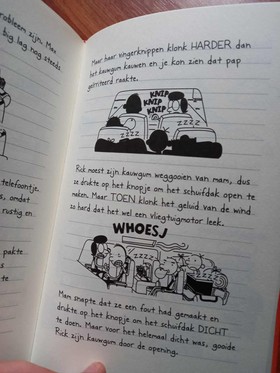 probleem zijn. Mam
big lag nog steeds
telefoontje,
s, omdat
rustig en
pakte
Maar haar vingerknippen klonk HARDER dan
het kauwgum kauwen en je kon zien dat pap
geïrriteerd raakte.
KNIP
KNIP
KNIP
ZZZZ
Rick moest zijn kauwgum weggooien van mam, dus
ze drukte op het knopje om het schuifdak open te
maken. Maar TOEN klonk het geluid van de wind
zo hard dat het wel een vliegtuigmotor leek.
WHOESJ
ZZZZ
Mam snapte dat ze een fout had gemaakt en
drukte op het knopje om het schuifdak DICHT
te doen. Maar voor het helemaal dicht was, gooide
Rick zijn kauwgum door de opening.